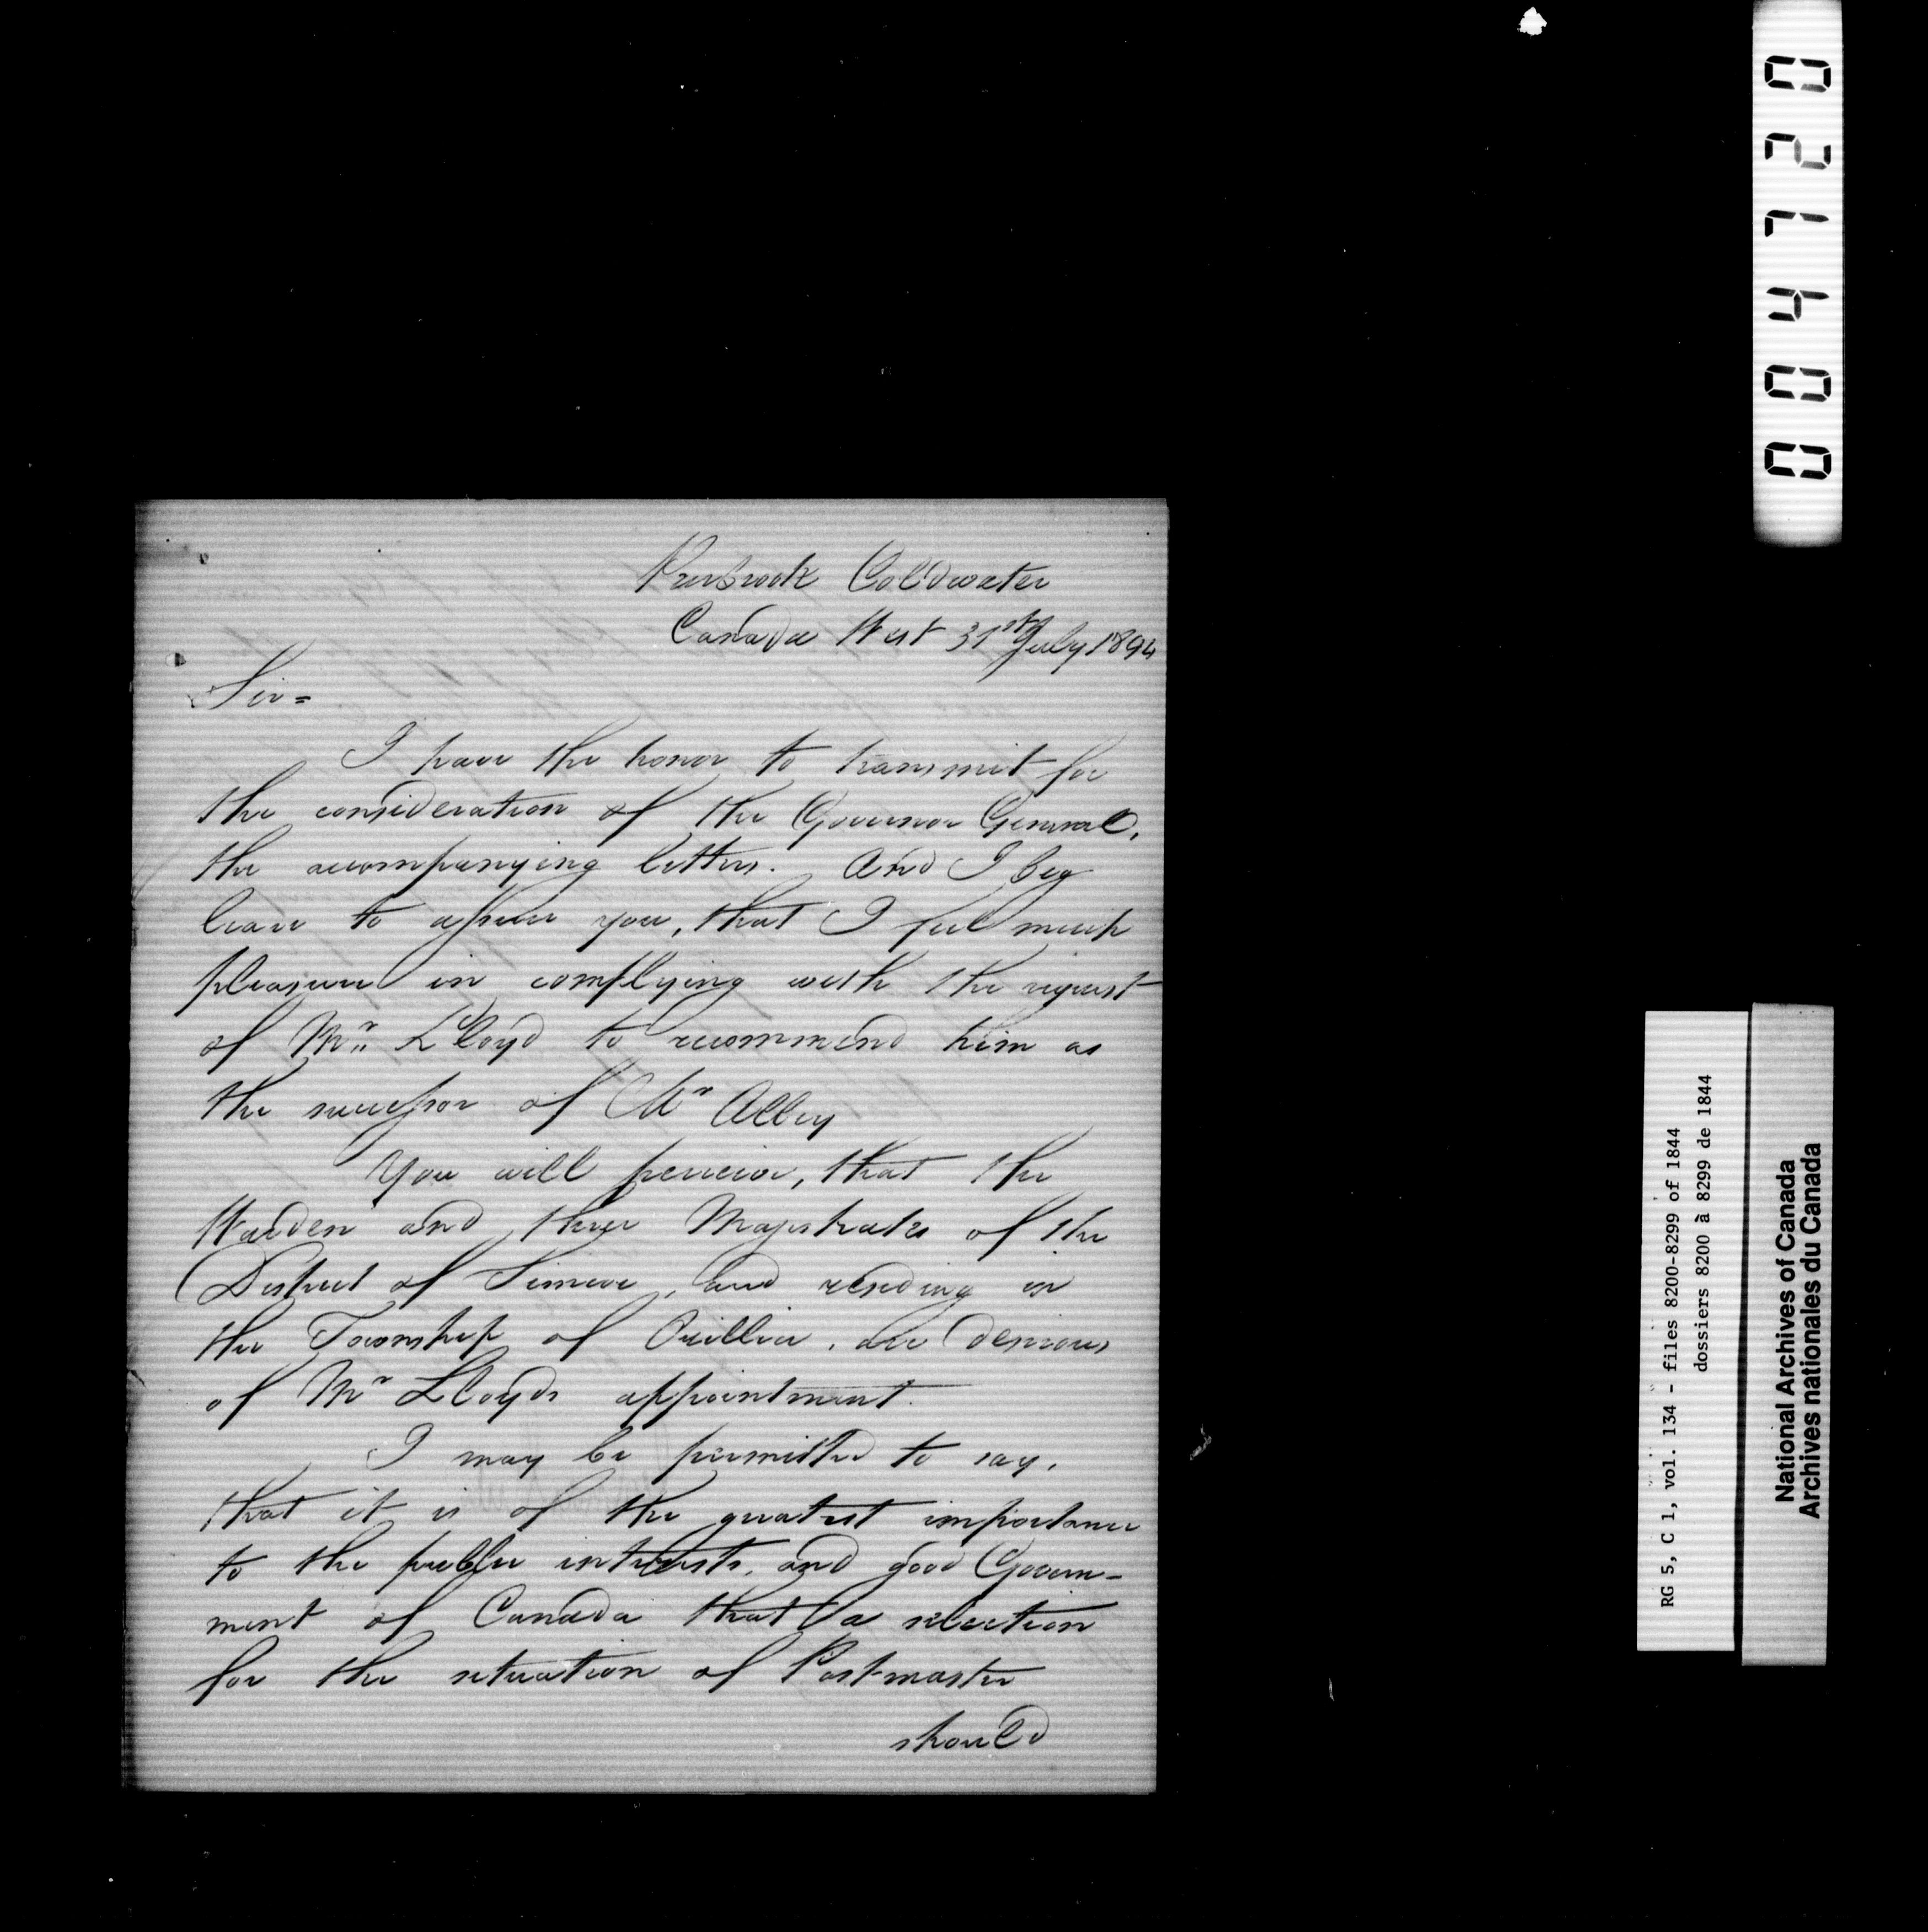 Purbrook Coldwater
Canada West 31st July 1844
Sir=
I have the honor to transmit for
the consideration of the Governor General,
the accompanying letters. And I beg
leave to assure you, that I feel much
pleasure in complying with the request
of Mr. Lloyd to recommend him as
the successor of Mr Alley
You will perceive, that the
Warden and three Magistrates of the
District of Simcoe, and residing in
the Township of Orillia, are desirous
of Mr Lloyds appointment.
I may be permitted to say,
that it is of the greatest importance
to the public interests, and good Govern-
ment of Canada that a selection
for the situation of Postmaster
should
027400
RG 5, C 1, vol. 134 - files 8200-8299 of 1844
dossiers 8200 à 8299 de 1844
National Archives of Canada
Archives nationales du Canada